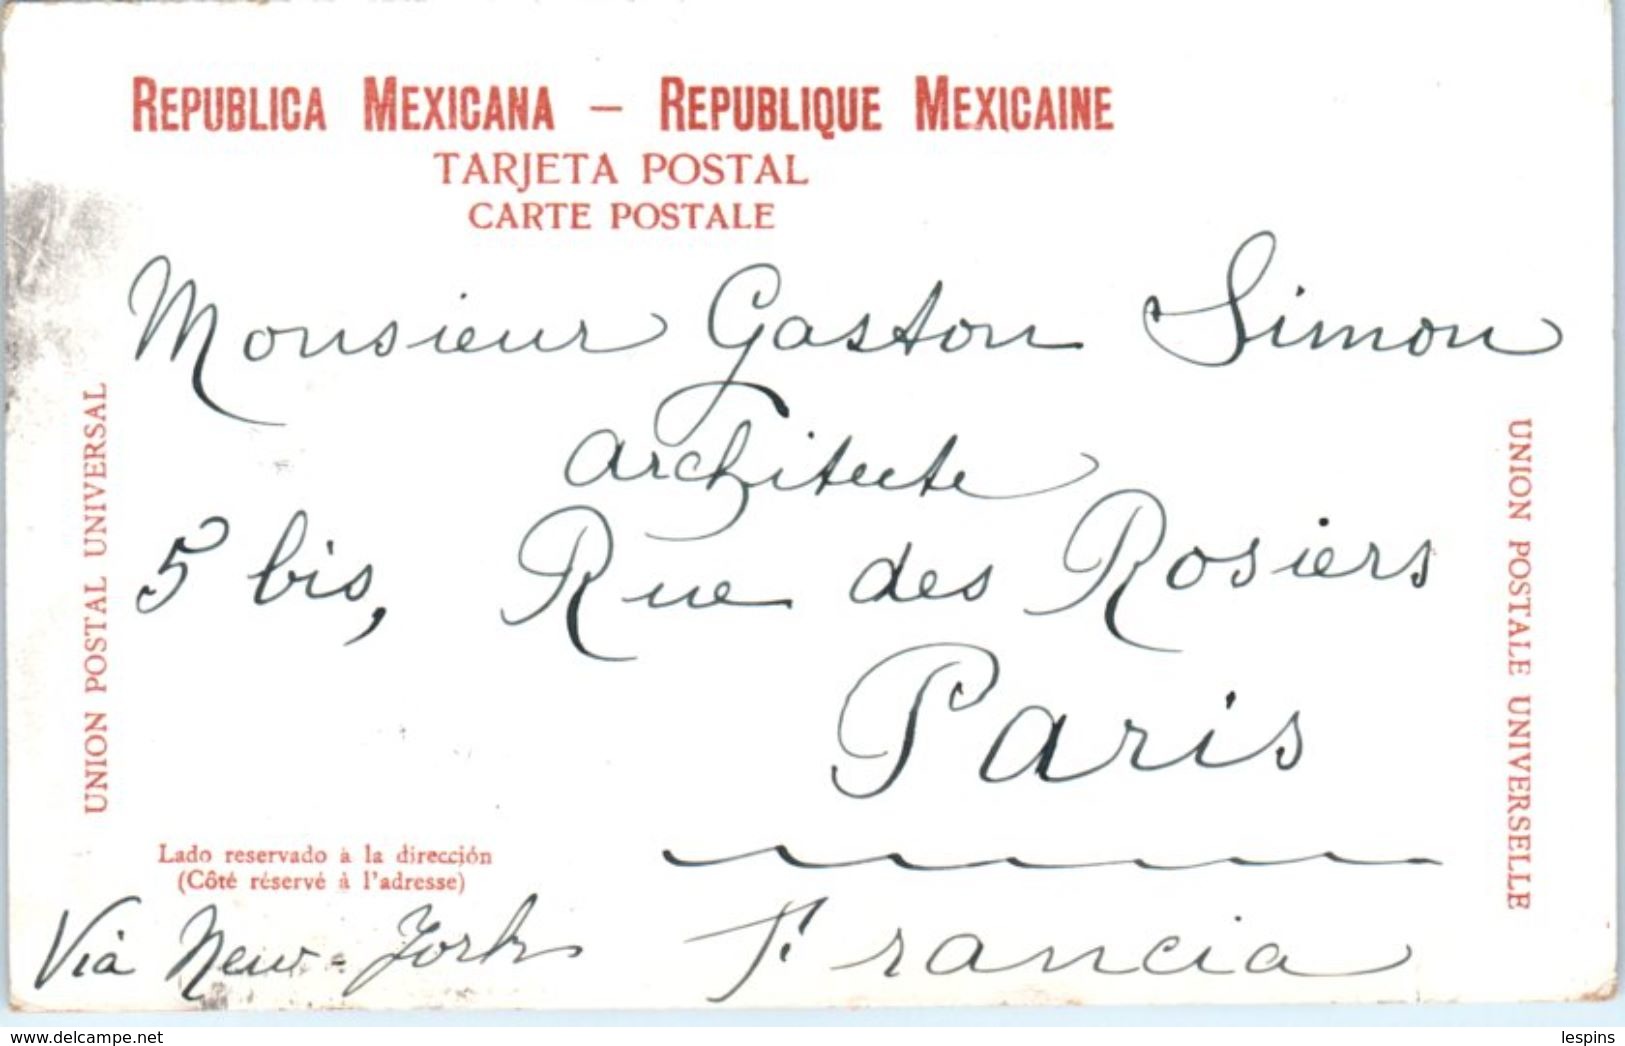 REPUBLICA MEXICANA – REPUBLIQUE MEXICAINE
TARJETA POSTAL
CARTE POSTALE
Monsieur Gaston Simon
architecte
5 bis, Rue des Rosiers
Paris
UNION POSTAL UNIVERSAL
UNION POSTALE UNIVERSELLE
Lado reservado à la dirección
(Côté réservé à l'adresse)
Via New-York
Francia
www.delcampe.net
lespins